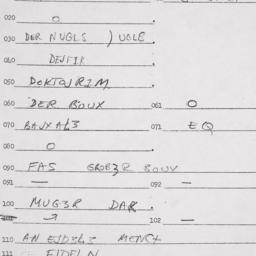 020 O
030 DER NUGLS ) UGLE
040 DEJFIR
050 DOKTOJRIM
060 DER BOUX 061 O
070 BAJXAL3 071 EQ
080 O
090 FAS GROB3R BOUX
091 — 092 —
100 MUG3R DAR
102 —
110 AN EJDL3L3 MENCX
111 EJDELN